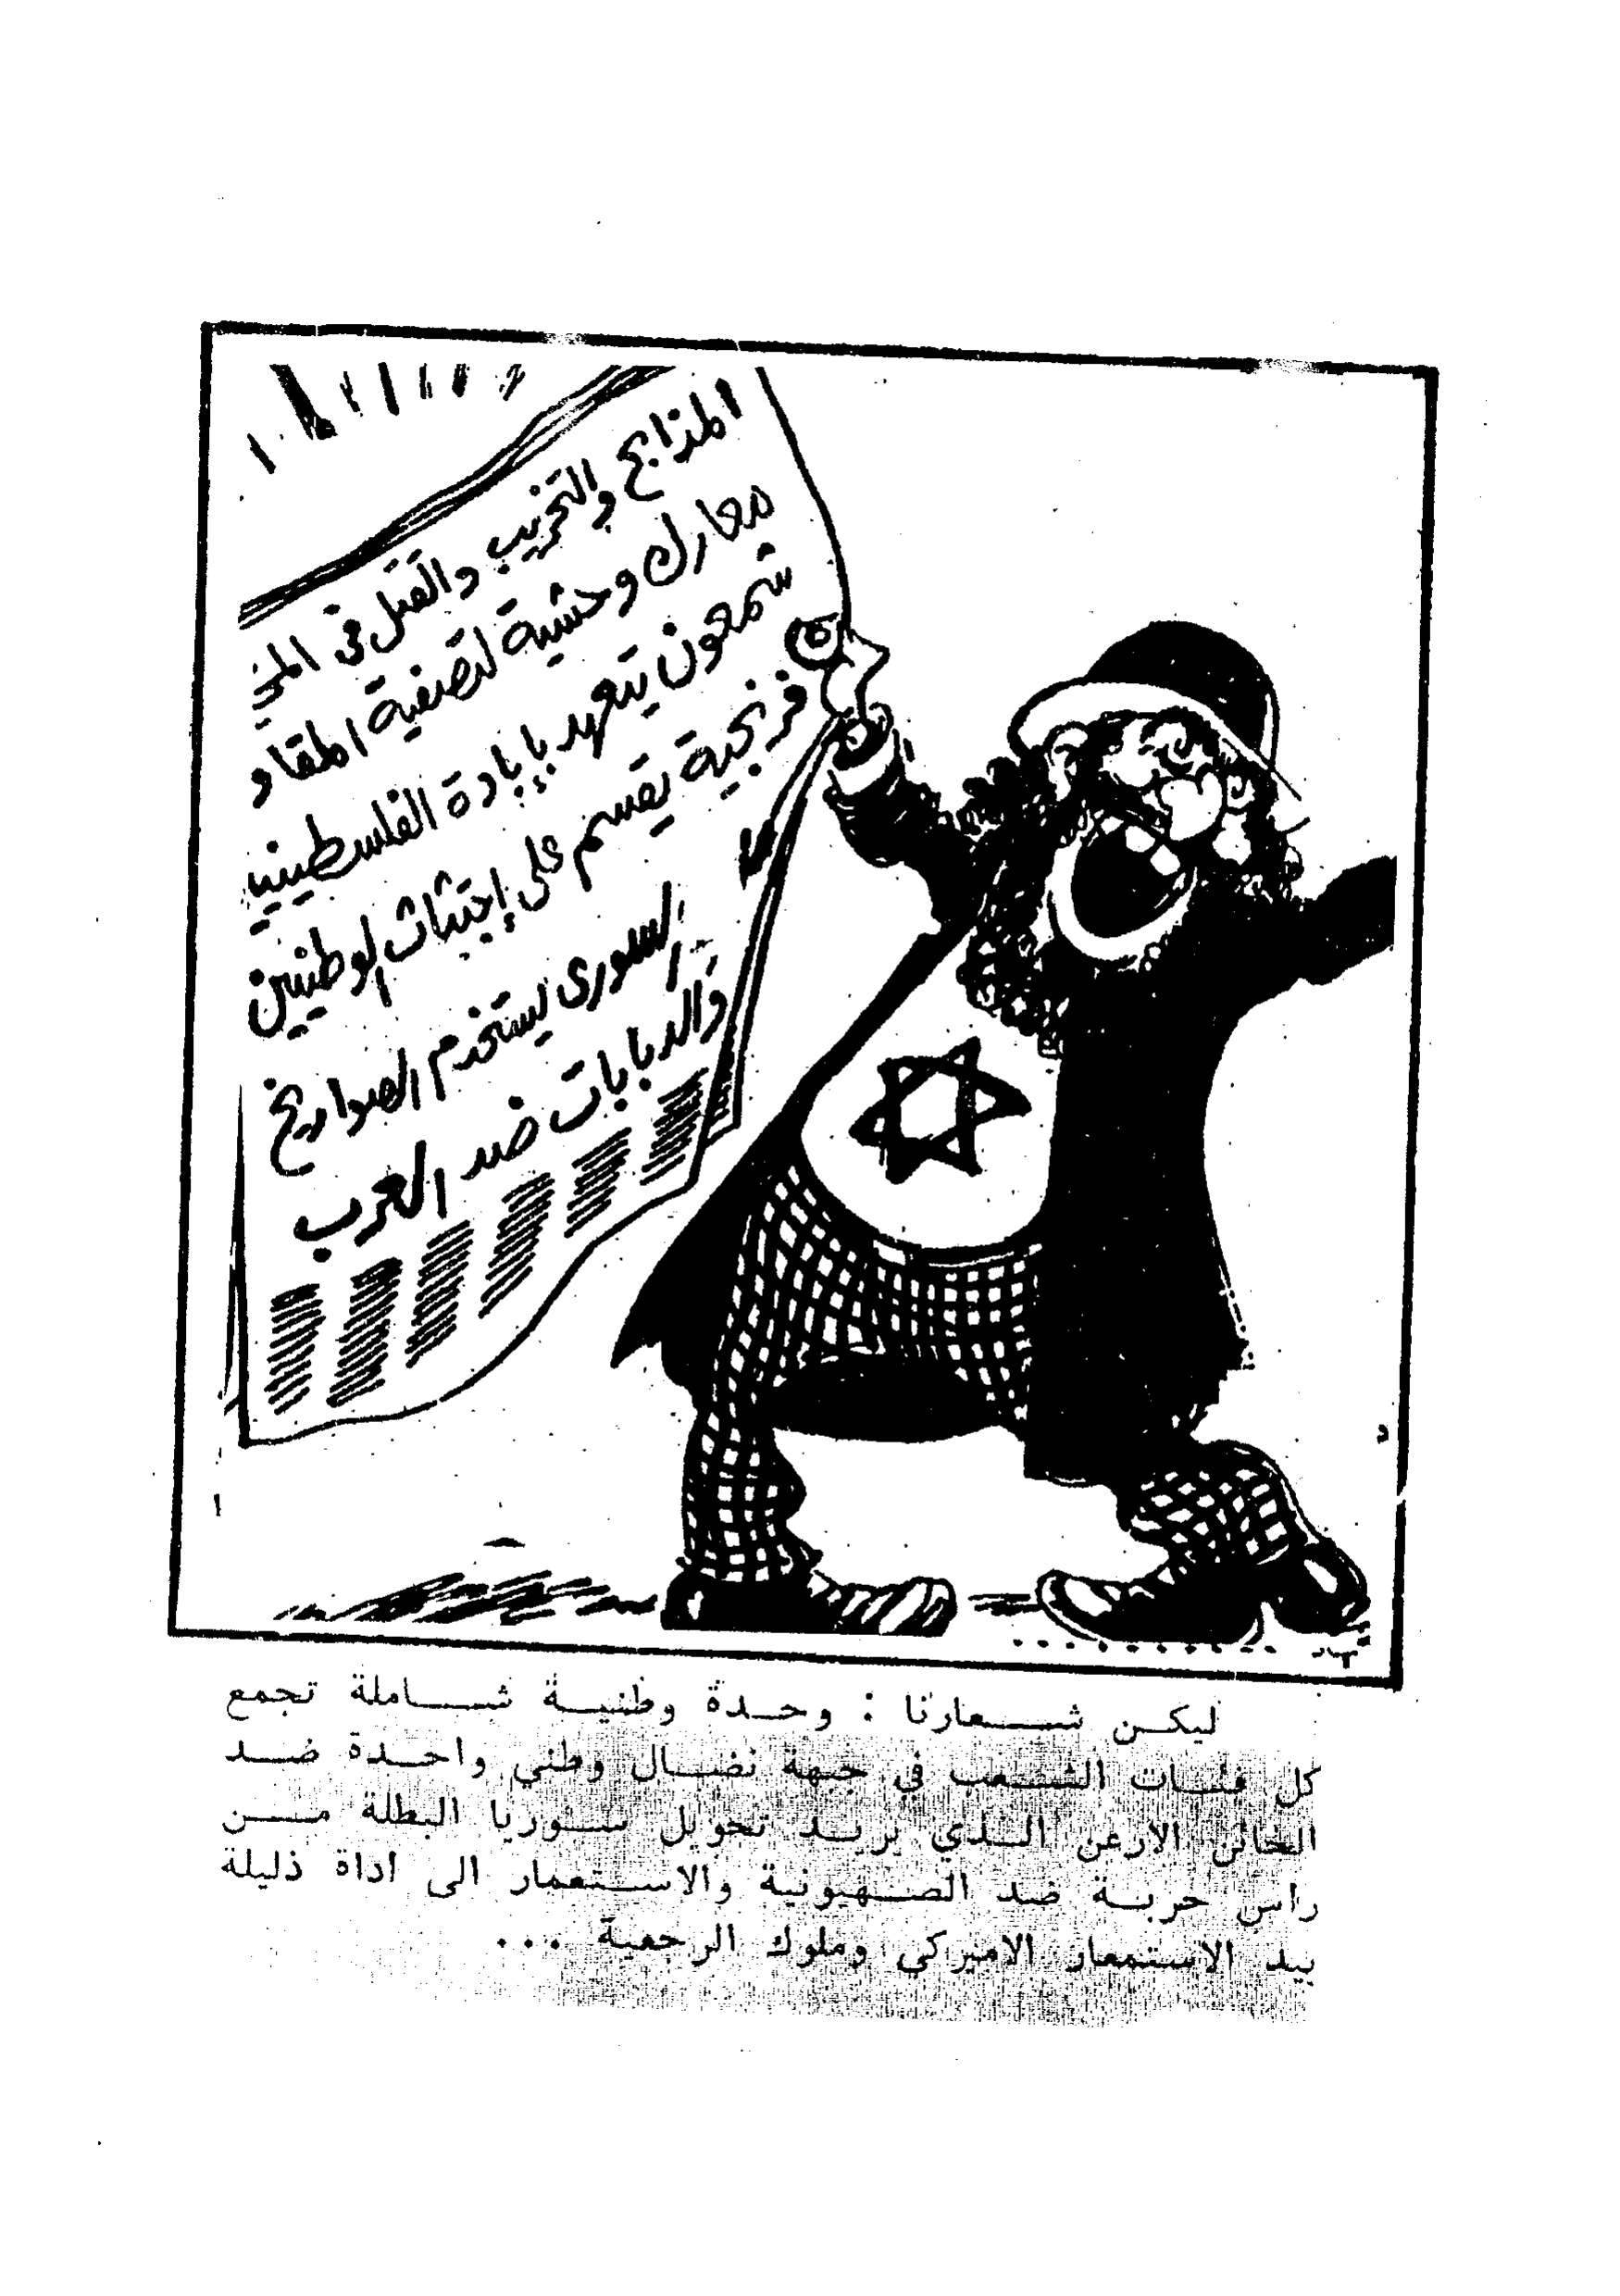 المذابح والتخريب والقتل في المخي
معارك وحشية لتصفية المقاو
شمعون يتعهد بإبادة الفلسطينيي
فرنجية يقسم على إجتثاث الوطنيين
السورى يستخدم الصواريخ
والدبابات ضد العرب
ليكن شعارنا : وحدة وطنية شاملة تجمع
كل فئات الشعب في جبهة نضال وطني واحدة ضد
الخائن الارعن الذي يريد تحويل سوريا البطلة من
راس حربة ضد الصهيونية والاستعمار الى اداة ذليلة
بيد الاستعمار الاميركي وملوك الرجعية ...